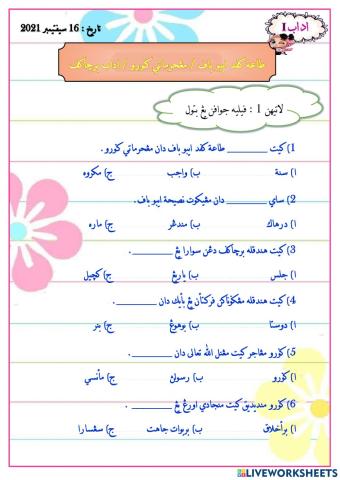 اداب 1
تاريخ : 16 سيڤتيمبر 2021
طاعة كڤد ايبو باڤ / مڠحرماتي ڬورو / اداب برچاكڤ
لاتيهن 1 : ڤيليه جواڤن يڠ بتول
1) كيت ________ طاعة كڤد ايبو باڤ دان مڠحرماتي ڬورو .
ا) سنة ب) واجب ج) مكروه
2) ساي ________ دان مڠيكوت نصيحة ايبو باڤ.
ا) درهاك ب) مندڠر ج) ماره
3) كيت هندقله برچاكڤ دڠن سوارا يڠ ________ .
ا) جلس ب) ياريڠ ج) كچيل
4) كيت هندقله مڠڬوناكن ڤركتاءن يڠ بأيك دان ________ .
ا) دوستا ب) بوهوڠ ج) بنر
5) ڬورو مڠاجر كيت مڠنل الله تعالى دان ________ .
ا) ڬورو ب) رسول ج) مأنسي
6) ڬورو منديديق كيت منجادي اورڠ يڠ ________ .
ا) برأخلاق ب) بربوات جاهت ج) سڠسارا
LIVEWORKSHEETS